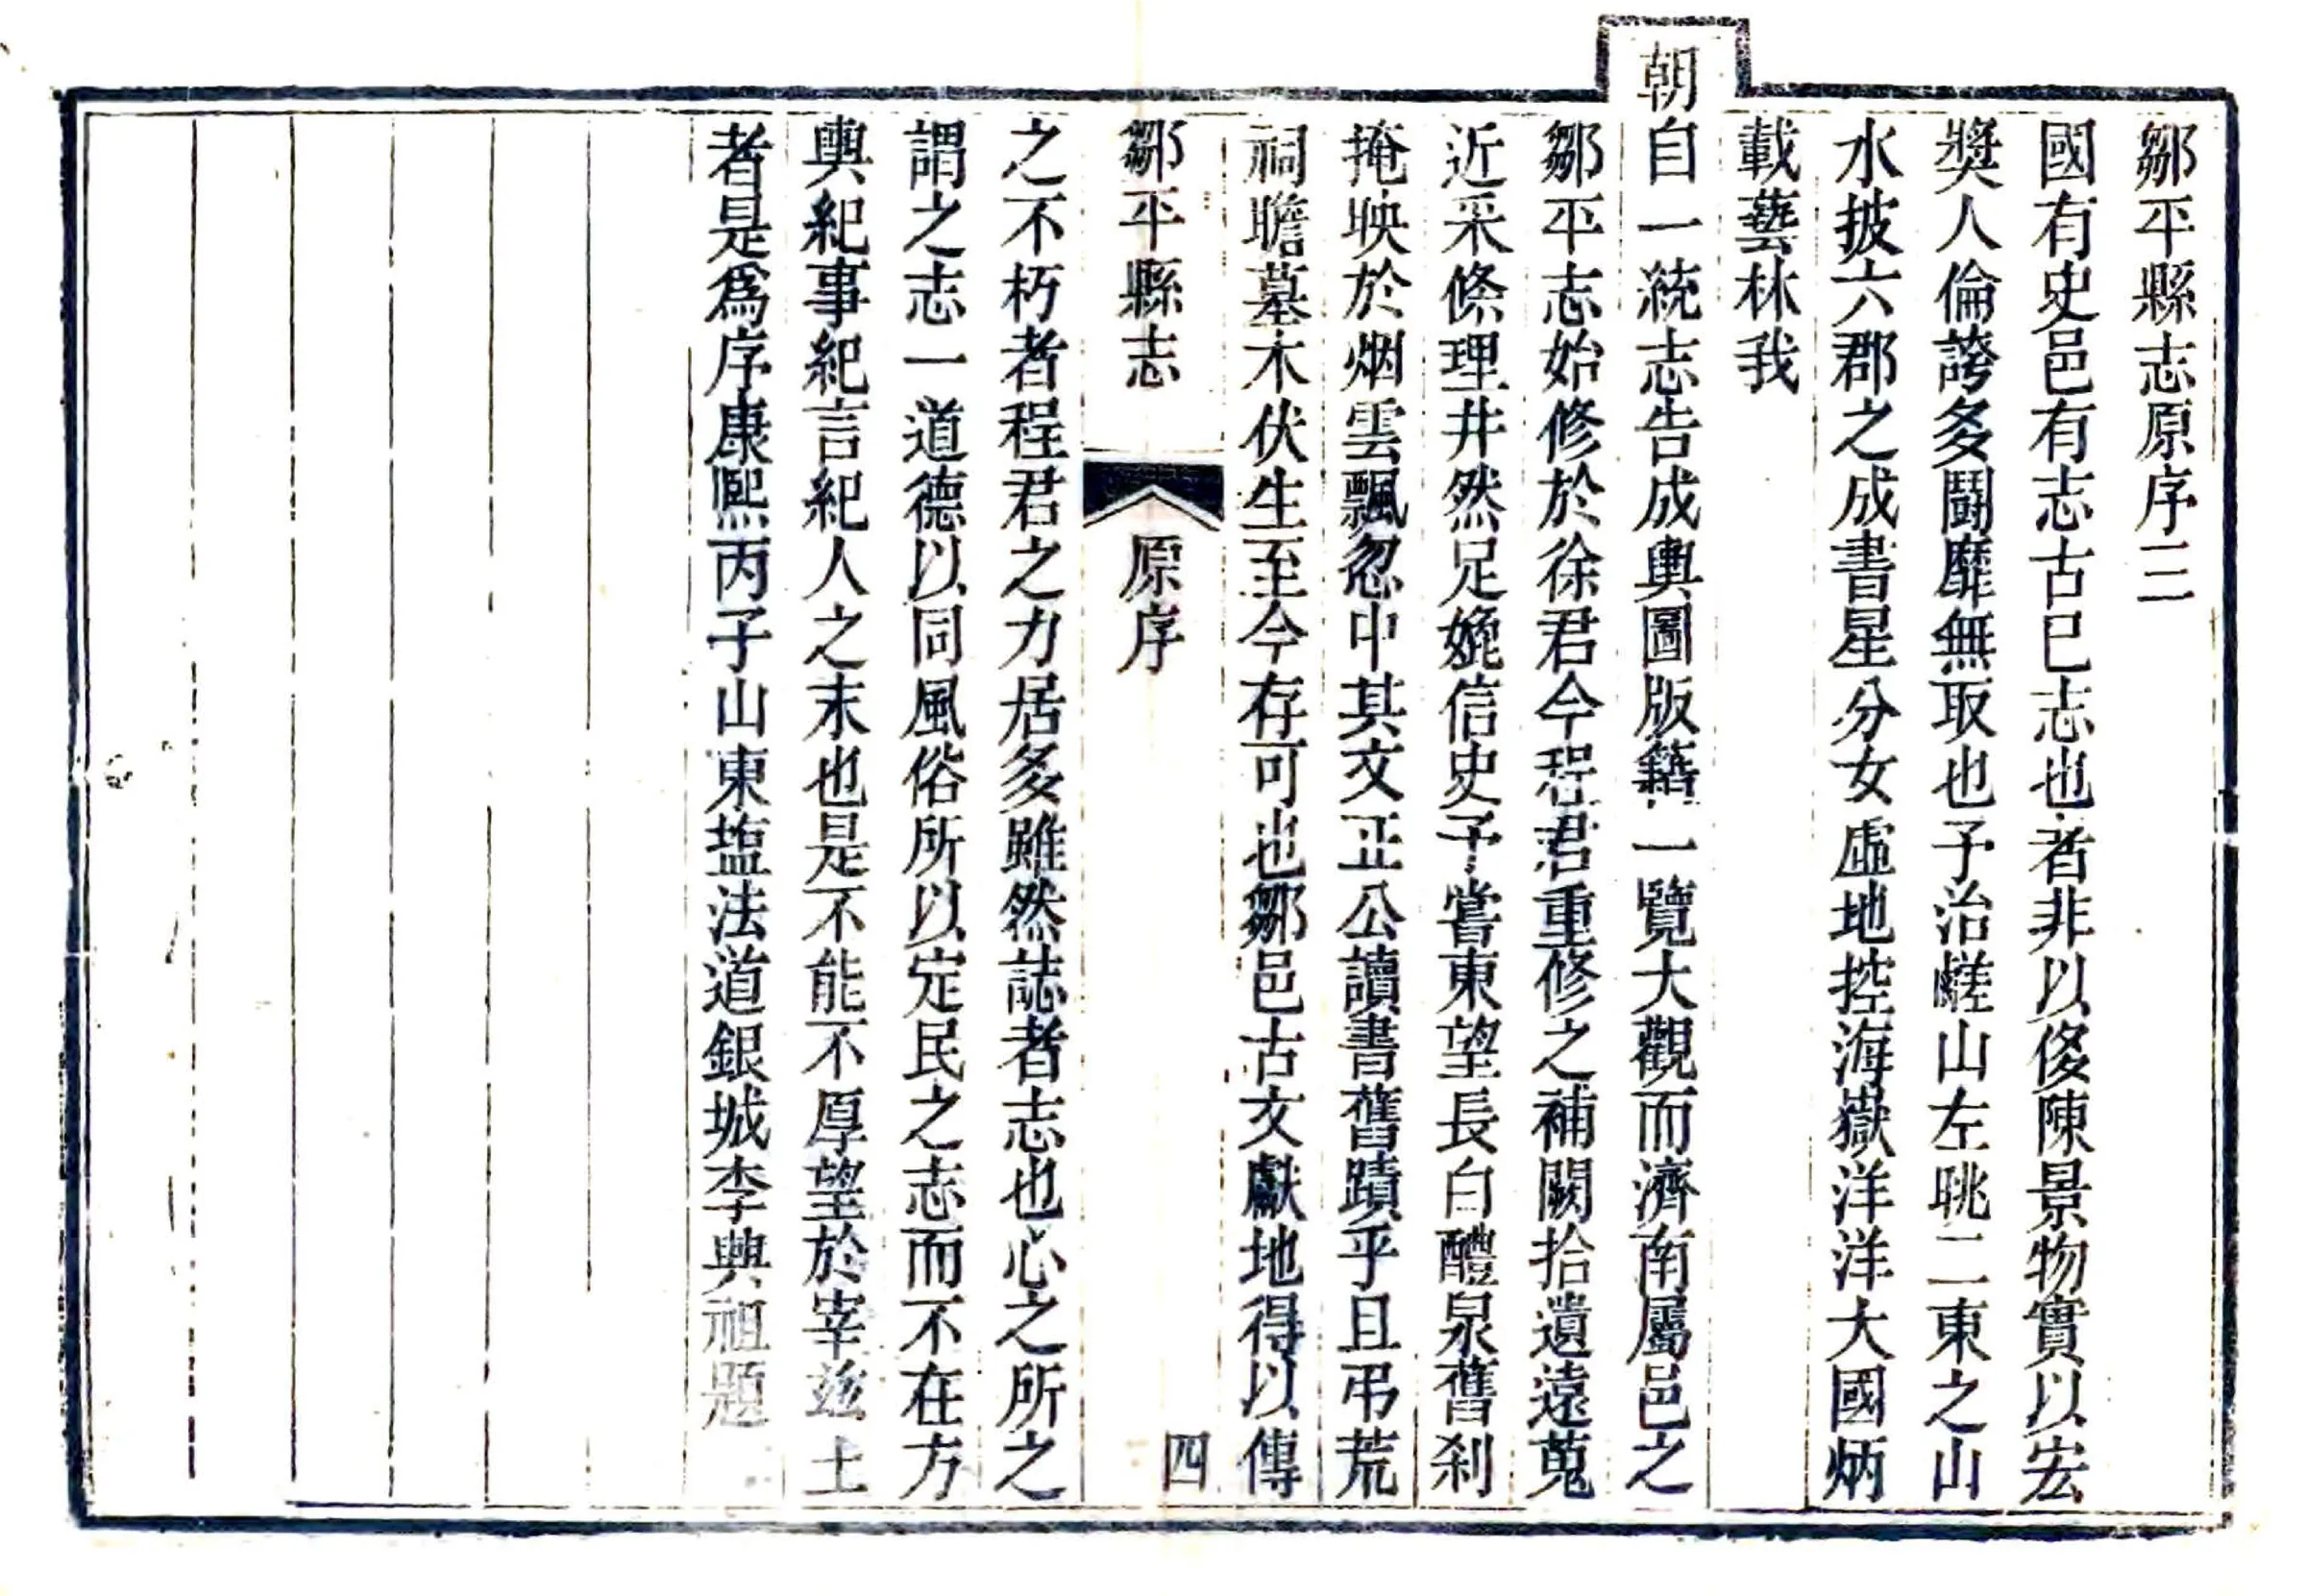 鄒平縣志原序三
國有史邑有志古已志也者非以侈陳景物實以宏
獎人倫誇多鬬靡無取也予治鹺山左眺二東之山
水披六郡之成書星分女虛地控海嶽洋洋大國炳
載藝林我
朝自一統志告成輿圖版籍一覽大觀而濟南屬邑之
鄒平志始修於徐君今程君重修之補闕拾遺遠蒐
近采條理井然足媲信史予嘗東望長白醴泉舊刹
掩映於烟雲飄忽中其文正公讀書舊蹟乎且弔荒
祠瞻墓木伏生至今存可也鄒邑古文獻地得以傳
鄒平縣志 原序 四
之不朽者程君之力居多雖然誌者志也心之所之
謂之志一道德以同風俗所以定民之志而不在方
輿紀事紀言紀人之末也是不能不厚望於宰茲土
者是爲序康熙丙子山東塩法道銀城李興祖題